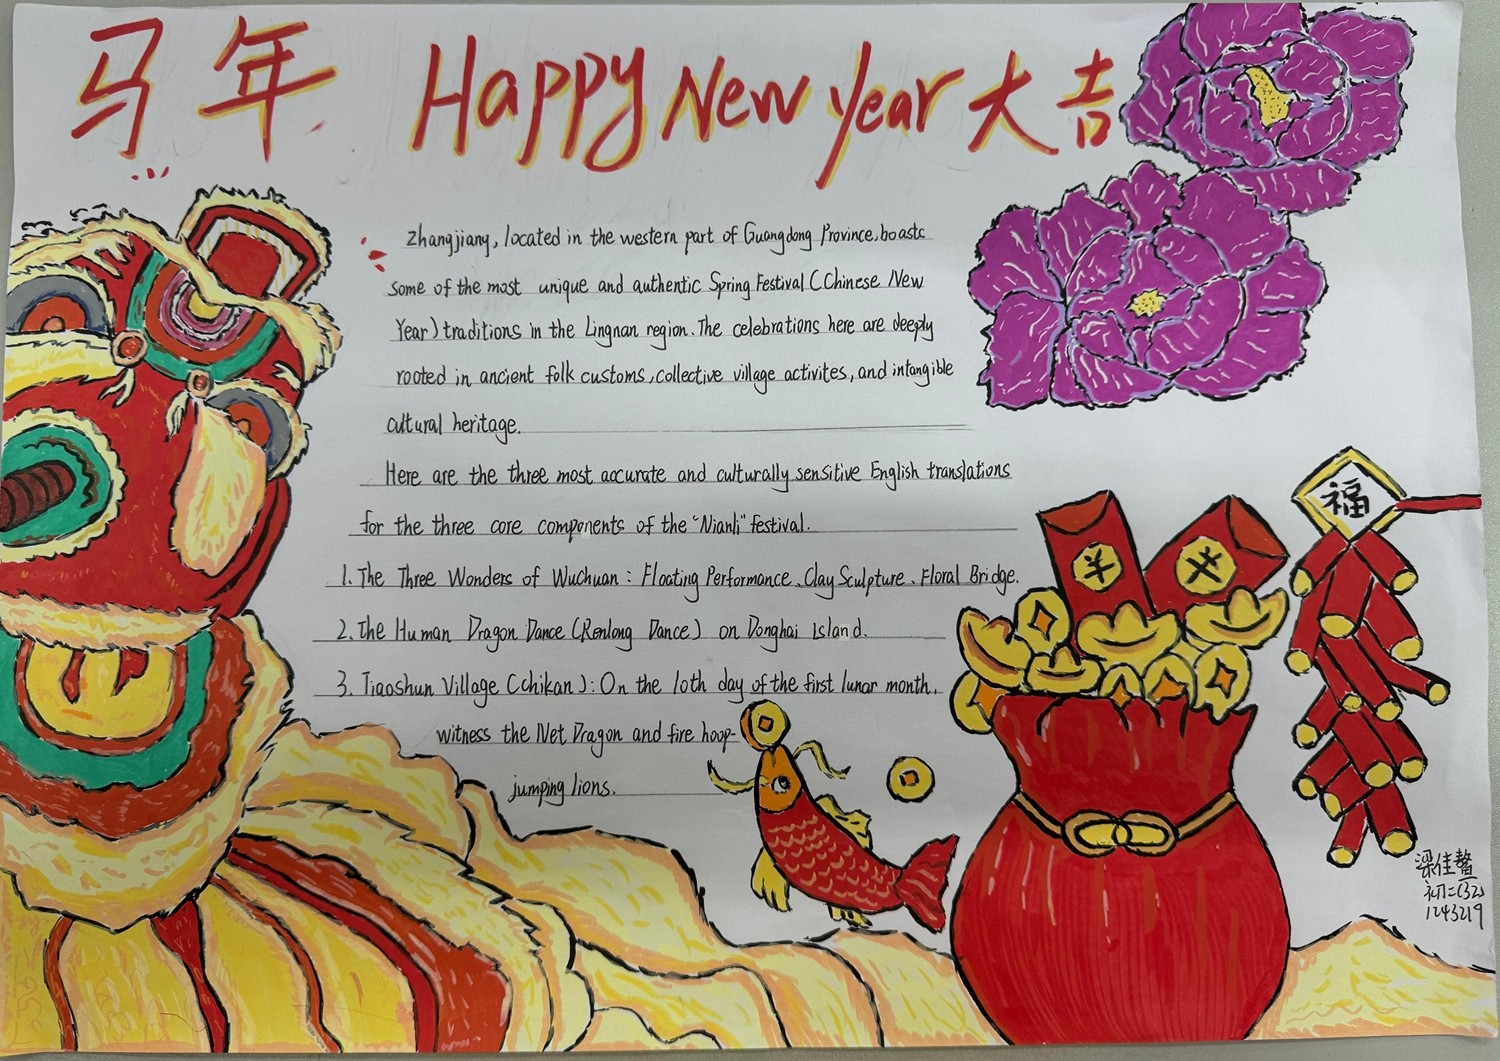 马年 Happy New Year 大吉
Zhangjiang, located in the western part of Guangdong Province, boasts
some of the most unique and authentic Spring Festival (Chinese New
Year) traditions in the Lingnan region. The celebrations here are deeply
rooted in ancient folk customs, collective village activites, and intangible
cultural heritage.
Here are the three most accurate and culturally sensitive English translations
for the three core components of the "Nianli" festival.
1. The Three Wonders of Wuchuan: Floating Performance、Clay Sculpture、Floral Bridge.
2. The Human Dragon Dance (Renlong Dance) on Donghai Island.
3. Tiaoshun Village (Chikan): On the 10th day of the first lunar month,
witness the Net Dragon and fire hoop-
jumping lions.
福
梁佳鳌
初二(32)
1243219